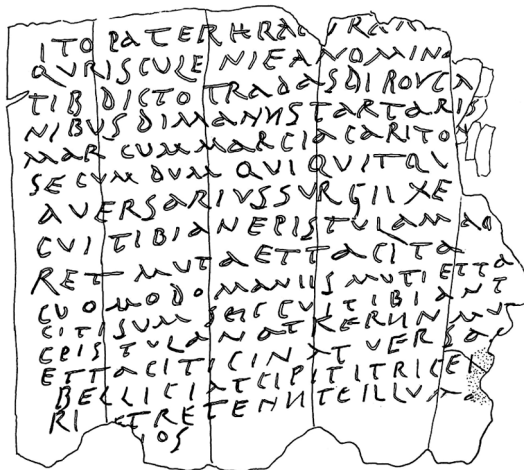 ITO PATER
QVRISCULE NIEANOMINA
TIB DICTO TRADAS DIROUCA
NIBUS DIMANUS TARTARIS
MAR CUM MARCIA CARITO
SECUM DUM QUI QUITQU
AVERSARIUSSURGIIXE
CVITIBIANEPISTULAMAD
RET MUTAETTACITA
CUOMODO MANIIS MUTI ETTA
CITI SUM SEICCUITIBIANT
EPISTULA
ETTACITICINAT VERSAR
BELLICIATCIPITITRICEI
RETENUTEILLUM
IOS